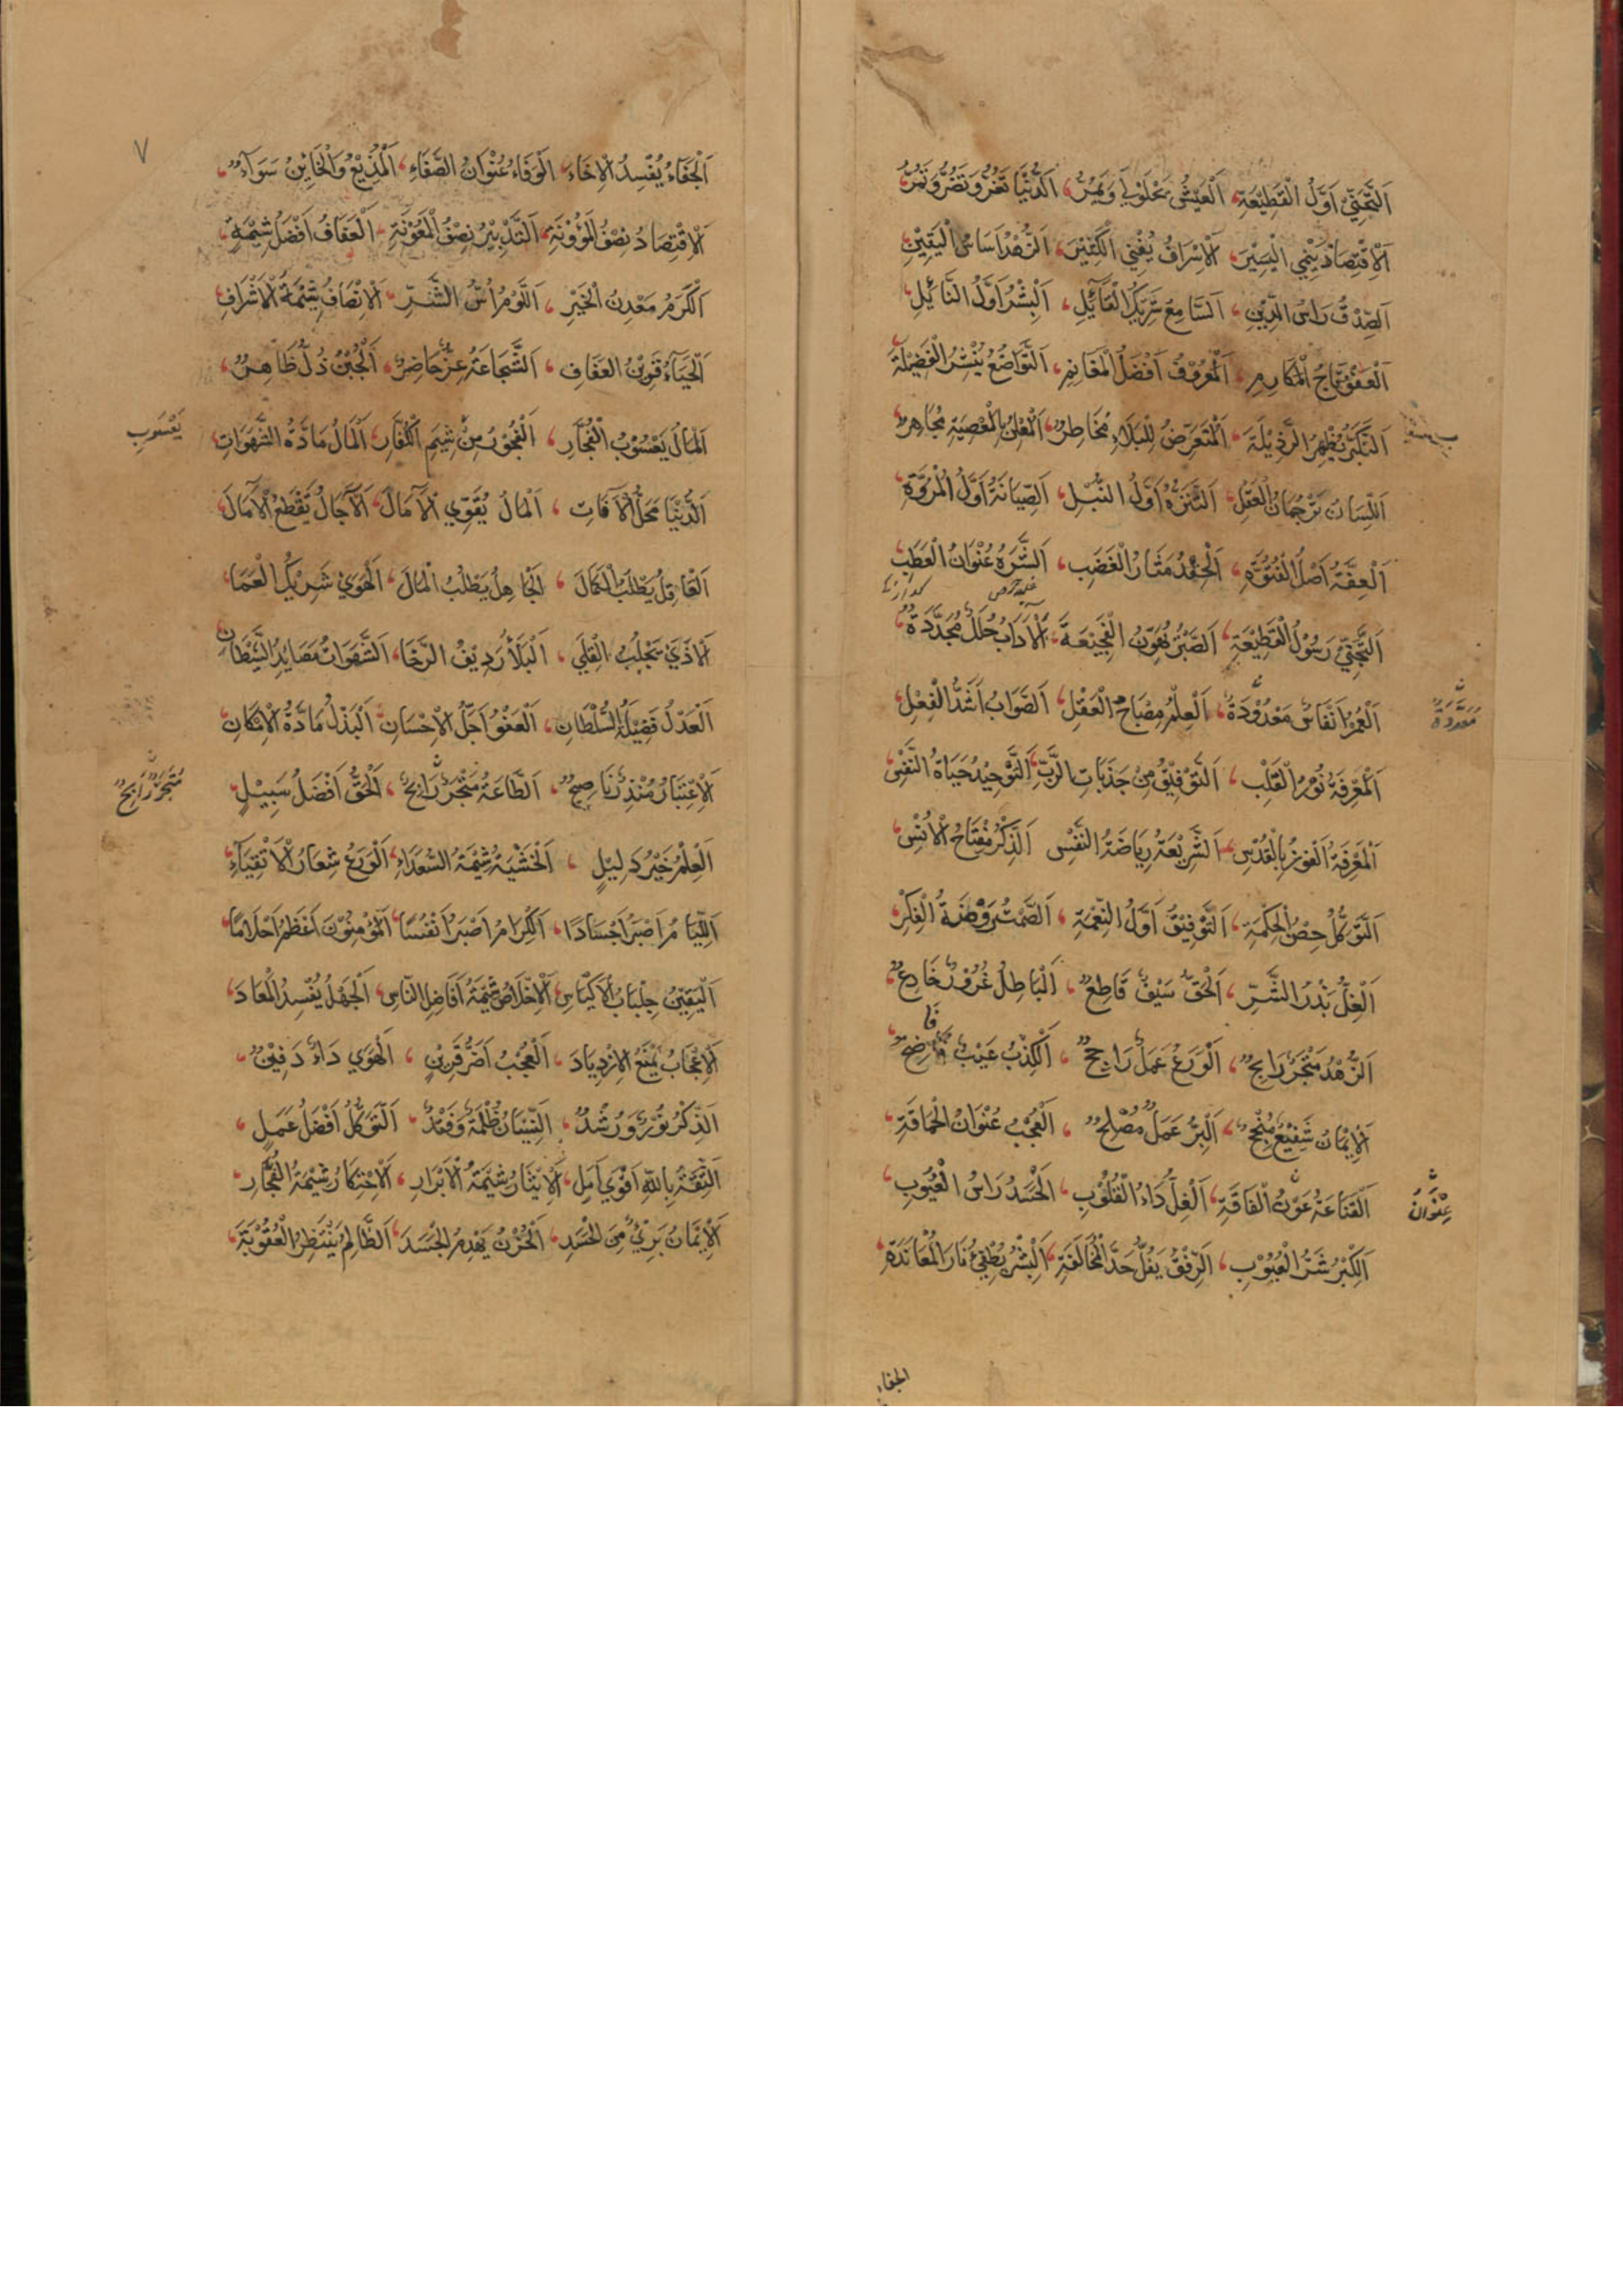 اَلتَّجَنِّيْ اَوَّلُ الْقَطِيْعَةِ، اَلْعَيْشُ يَحْلُوْ وَيَمُرُّ، اَلدُّنْيَا تَغُرُّ وَتَضُرُّ وَتَمُرُّ،
اَلْاِقْتِصَادُ يُنْمِي الْيَسِيْرَ، اَلْاِسْرَافُ يُفْنِي الْكَثِيْرَ، اَلزُّهْدُ اَسَاسُ الْيَقِيْنِ،
اَلصِّدْقُ رَاسُ الدِّيْنِ، اَلسَّامِعُ شَرِيْكُ الْقَآئِلِ، اَلْبِشْرُ اَوَّلُ النَّآئِلِ،
اَلْعَفْوُ تَاجُ الْمَكَارِمِ، اَلْمَعْرُوْفُ اَفْضَلُ الْمَغَانِمِ، اَلتَّوَاضُعُ يَنْشُرُ الْفَضِيْلَةَ،
اَلتَّكَبُّرُ يُظْهِرُ الرَّذِيْلَةَ، اَلْمُتَعَرِّضُ لِلْبَلَآءِ مُخَاطِرٌ، اَلْمُعْلِنُ بِالْمَعْصِيَةِ مُجَاهِرٌ،
اَللِّسَانُ تَرْجُمَانُ الْعَقْلِ، اَلتَّنَزُّهُ اَوَّلُ النُّبْلِ، اَلصِّيَانَةُ اَوَّلُ الْمُرُوَّةِ،
اَلْعِفَّةُ اَصْلُ الْفُتُوَّةِ، اَلْحِقْدُ مَثَارُ الْغَضَبِ، اَلشَّرَهُ عُنْوَانُ الْعَطَبِ،
اَلتَّجَنِّيْ رَسُوْلُ الْقَطِيْعَةِ، اَلصَّبْرُ يُهَوِّنُ الْفَجِيْعَةَ، اَلْآدَابُ حُلَلٌ مُجَدَّدَةٌ،
اَلْعُمُرُ اَنْفَاسٌ مَعْدُوْدَةٌ، اَلْعِلْمُ مِصْبَاحُ الْعَقْلِ، اَلصَّوَابُ اَشَدُّ الْفِعْلِ،
مَعْدُوْدَةٌ
اَلْمَعْرِفَةُ نُوْرُ الْقَلْبِ، اَلتَّوْفِيْقُ مِنْ جَذَبَاتِ الرَّبِّ، اَلتَّوْحِيْدُ حَيَاةُ النَّفْسِ،
اَلْمَعْرِفَةُ الْفَوْزُ بِالْقُدْسِ، اَلشَّرِيْعَةُ رِيَاضَةُ النَّفْسِ، اَلذِّكْرُ مِفْتَاحُ الْاُنْسِ،
اَلتَّوَكُّلُ حِصْنُ الْحِكْمَةِ، اَلتَّوْفِيْقُ اَوَّلُ النِّعْمَةِ، اَلصَّمْتُ رَوْضَةُ الْفِكْرِ،
اَلْغِلُّ بَذْرُ الشَّرِّ، اَلْحَقُّ سَيْفٌ قَاطِعٌ، اَلْبَاطِلُ غُرُوْرٌ خَادِعٌ،
اَلزُّهْدُ مَتْجَرٌ رَابِحٌ، اَلْوَرَعُ عَمَلٌ رَاجِحٌ، اَلْكِذْبُ عَيْبٌ فَاضِحٌ،
اَلْاِيْمَانُ شَفِيْعٌ مُنْجِحٌ، اَلْبِرُّ عَمَلٌ مُصْلِحٌ، اَلْعُجْبُ عُنْوَانُ الْحَمَاقَةِ،
اَلْقَنَاعَةُ عَوْنُ الْفَاقَةِ، اَلْغِلُّ دَاءُ الْقُلُوْبِ، اَلْحَسَدُ رَاسُ الْعُيُوْبِ،
عُنْوَانُ
اَلْكِبْرُ شَرُّ الْعُيُوْبِ، اَلرِّفْقُ يَفُلُّ حَدَّ الْمُخَالَفَةِ، اَلْبِشْرُ يُطْفِئُ نَارَ الْمُعَانَدَةِ،
الجفاء
٧
اَلْجَفَآءُ يُفْسِدُ الْاِخَاءَ، اَلْوَفَاءُ عُنْوَانُ الصَّفَاءِ، اَلْمُذِيْعُ وَالْخَايِنُ سَوَآءٌ،
اَلْاِقْتِصَادُ نِصْفُ الْمَؤُوْنَةِ، اَلتَّدْبِيْرُ نِصْفُ الْمَعُوْنَةِ، اَلْعَفَافُ اَفْضَلُ شِيْمَةٍ،
اَلْكَرَمُ مَعْدِنُ الْخَيْرِ، اَللَّوْمُ اُسُّ الشَّرِّ، اَلْاِنْصَافُ شِيْمَةُ الْاَشْرَافِ،
اَلْحَيَآءُ قَرِيْنُ الْعَفَافِ، اَلشَّجَاعَةُ عِزٌّ حَاضِرٌ، اَلْجُبْنُ ذُلٌّ ظَاهِرٌ،
اَلْمَالُ يَعْسُوْبُ الْفُجَّارِ، اَلْفُجُوْرُ مِنْ شِيَمِ الْكُفَّارِ، اَلْمَالُ مَادَّةُ الشَّهَوَاتِ،
يَعْسُوبُ
اَلدُّنْيَا مَحَلُّ الْآفَاتِ، اَلْمَالُ يُقَوِّي الْآمَالَ، اَلْآجَالُ يَقْطَعُ الْآمَالَ،
اَلْعَاقِلُ يَطْلُبُ الْكَمَالَ، اَلْجَاهِلُ يَطْلُبُ الْمَالَ، اَلْهَوٰي شَرِيْكُ الْعَمَا،
اَلْاَذٰي يَجْلِبُ الْقِلٰي، اَلْبَلَآءُ رَدِيْفُ الرَّخَا، اَلشَّهَوَاتُ مَصَايِدُ الشَّيْطَانِ،
اَلْعَدْلُ فَضِيْلَةُ السُّلْطَانِ، اَلْعَفْوُ اَجَلُّ الْاِحْسَانِ، اَلْبَذْلُ مَادَّةُ الْاِمْكَانِ،
اَلْاِعْتِبَارُ مُنْذِرٌ نَاصِحٌ، اَلطَّاعَةُ مَتْجَرٌ رَابِحٌ، اَلْحَقُّ اَفْضَلُ سَبِيْلٍ،
مَتْجَرٌ رَابِحٌ
اَلْعِلْمُ خَيْرُ دَلِيْلٍ، اَلْخَشْيَةُ شِيْمَةُ السُّعَدَآءِ، اَلْوَرَعُ شِعَارُ الْاَتْقِيَآءِ،
اَللِّيَامُ اَصْبَرُ اَجْسَادًا، اَلْكِرَامُ اَصْبَرُ اَنْفُسًا، اَلْمُؤْمِنُوْنَ اَعْظَمُ اَحْلَامًا،
اَلْيَقِيْنُ جِلْبَابُ الْاَكْيَاسِ، اَلْاِخْلَاصُ شِيْمَةُ اَفَاضِلِ النَّاسِ، اَلْجَهْلُ يُفْسِدُ الْمَعَادَ،
اَلْاِعْجَابُ يَمْنَعُ الْاِزْدِيَادَ، اَلْعُجْبُ اَضَرُّ قَرِيْنٍ، اَلْهَوٰي دَاءٌ دَفِيْنٌ،
اَلذِّكْرُ نُوْرٌ وَرُشْدٌ، اَلنِّسْيَانُ ظُلْمَةٌ وَفَقْدٌ، اَلتَّوَكُّلُ اَفْضَلُ عَمَلٍ،
اَلثِّقَةُ بِاللهِ اَقْوٰي اَمَلٍ، اَلْاِيْثَارُ شِيْمَةُ الْاَبْرَارِ، اَلْاِحْتِكَارُ شِيْمَةُ الْفُجَّارِ،
اَلْاِيْمَانُ بَرِيْءٌ مِنَ الْحَسَدِ، اَلْحُزْنُ يَهْدِمُ الْجَسَدَ، اَلظَّالِمُ يَنْتَظِرُ الْعُقُوْبَةَ،